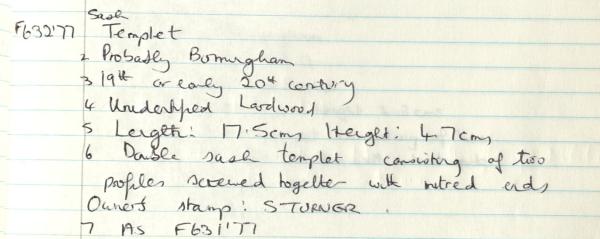 Sash
F632'77 Templet
2 Probably Birmingham
3 19th or early 20th century
4 Unidentified Hardwood
5 Length: 17.5cms Height: 4.7cms
6 Double sash templet consisting of two
profiles screwed together with mitred ends
Owners stamp: S TURNER.
7 As F631'77